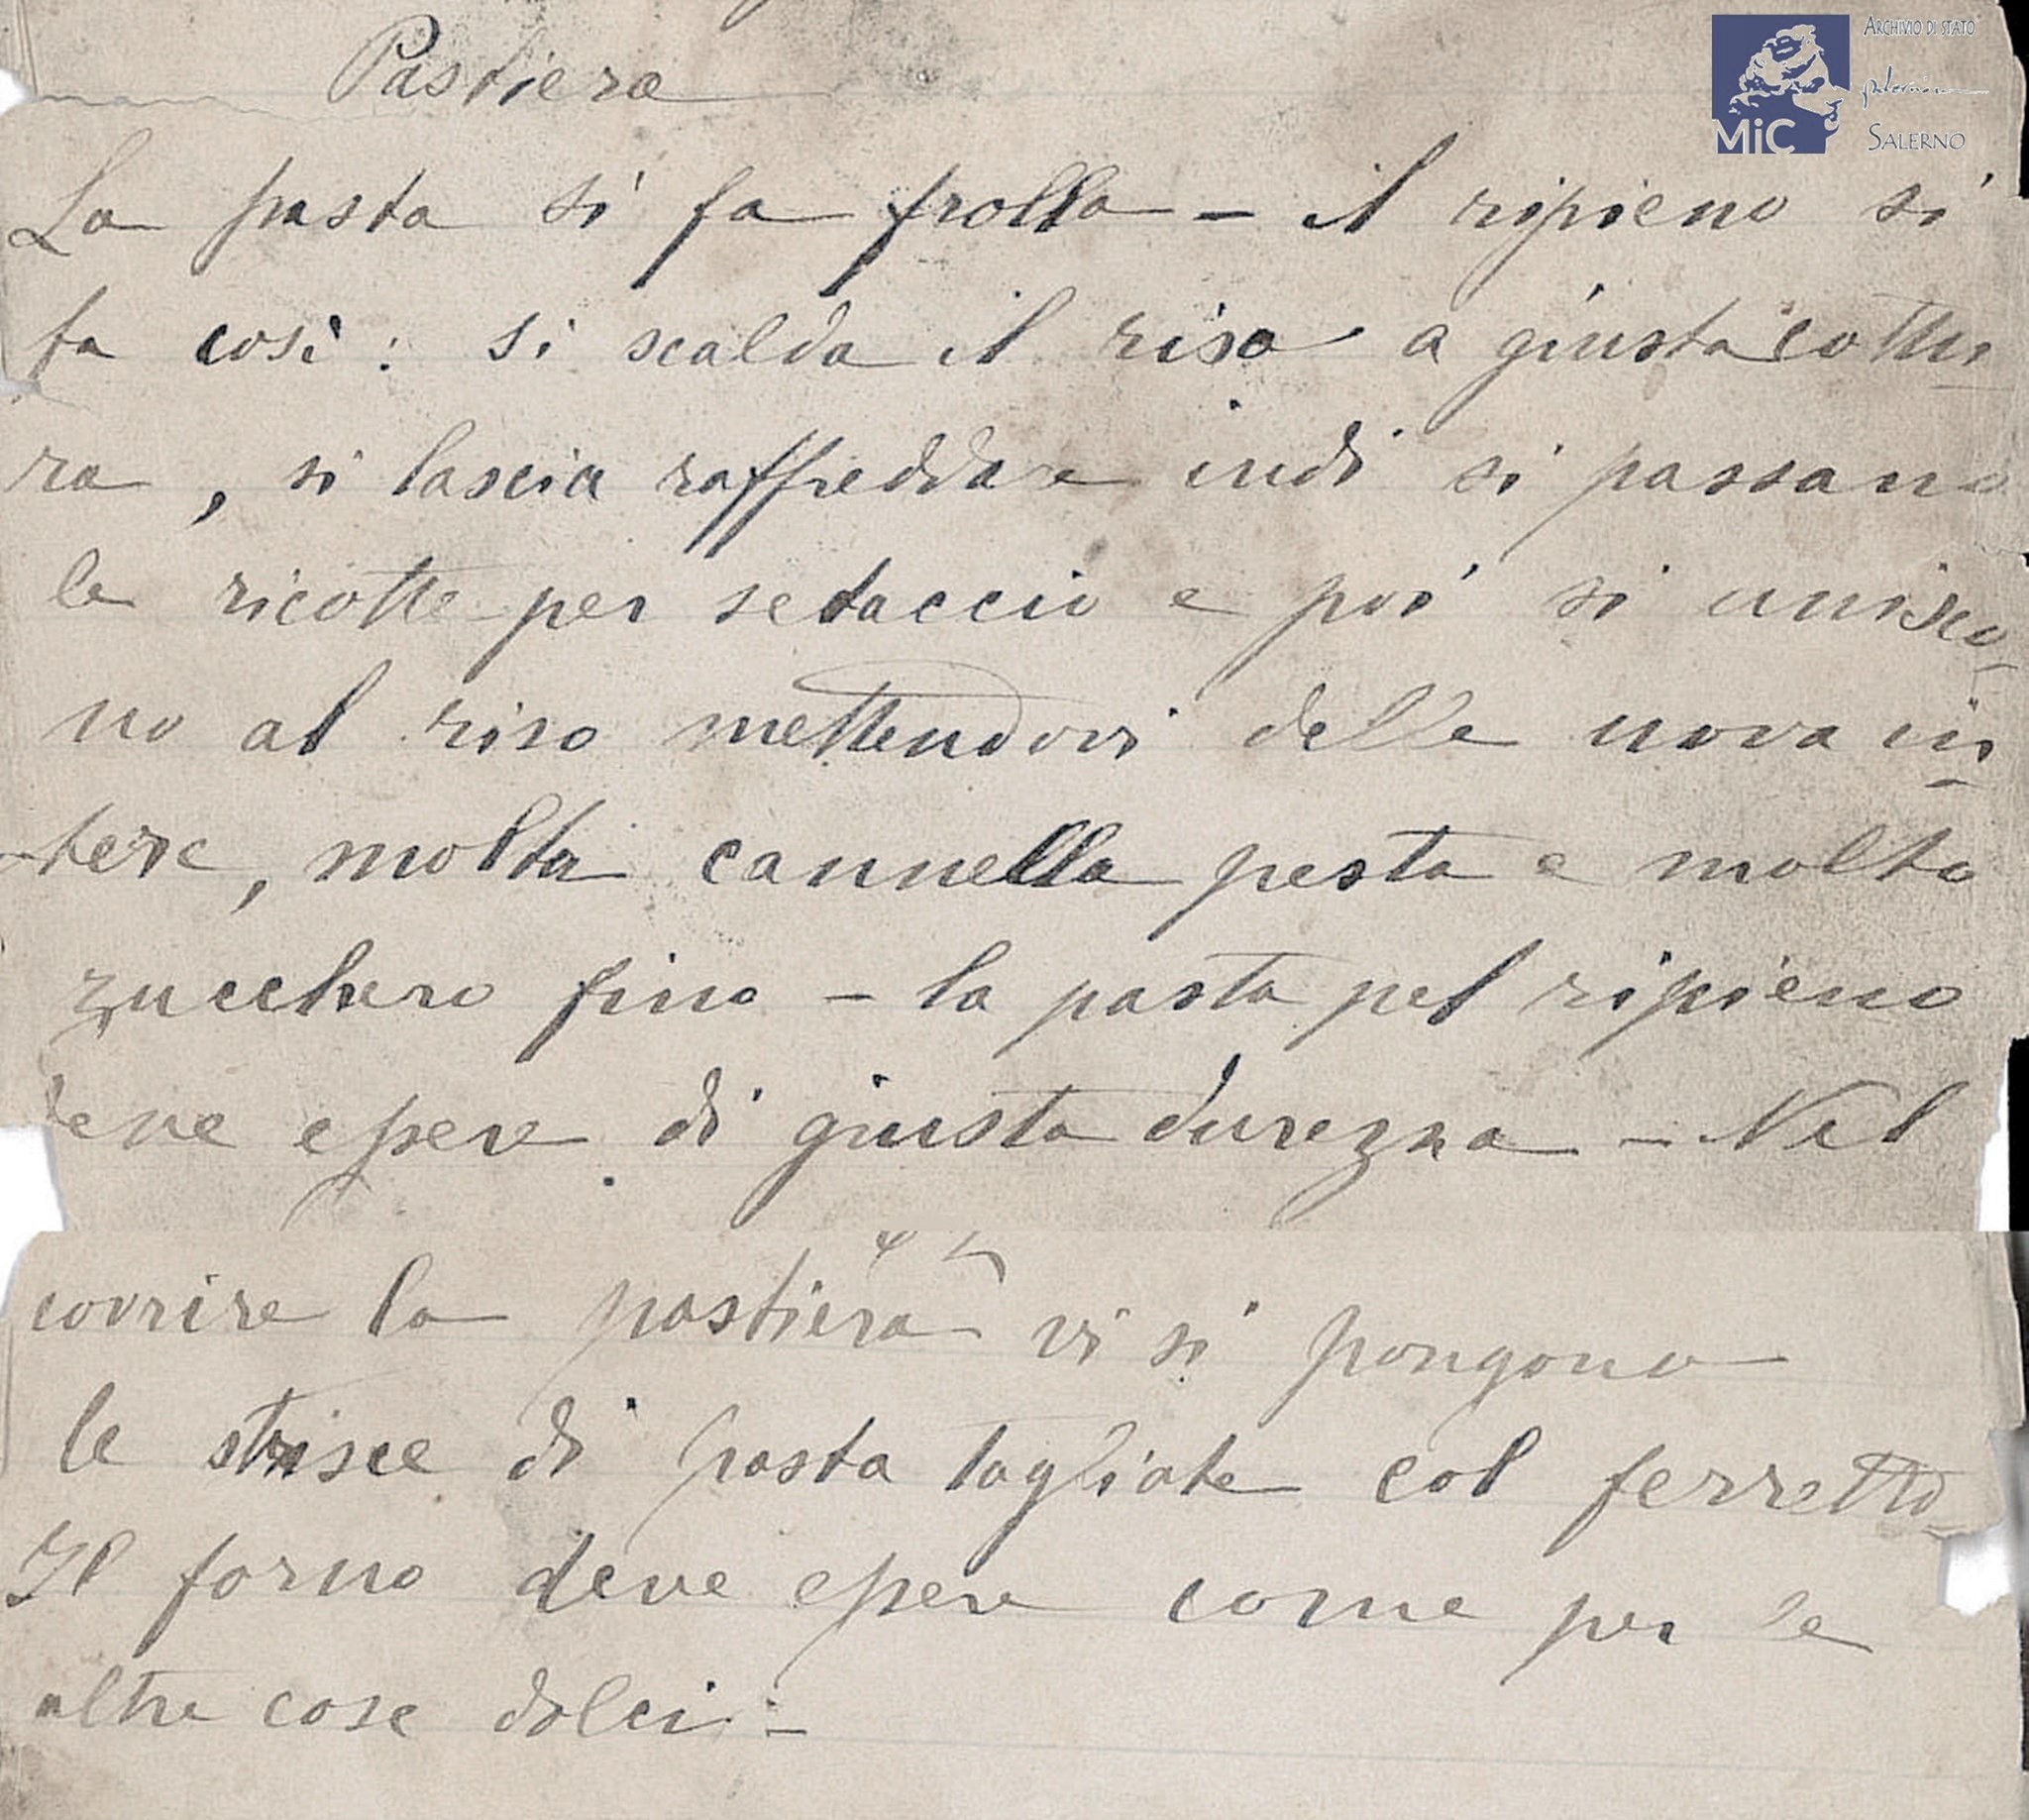 Pastiera
ARCHIVIO DI STATO
MiC
SALERNO
La pasta si fa frolla - il ripieno si
fa così: si scalda il riso a giusta cottu-
ra, si lascia raffreddare indi si passano
le ricotte per setaccio e poi si unisco-
no al riso mettendovi delle uova in-
tere, molta cannella pesta e molto
zucchero fino - la pasta pel ripieno
deve essere di giusta durezza - Nel
covrire la pastiera vi si pongono
le strisce di pasta tagliate col ferretto
Il forno deve essere come per le
altre cose dolci -